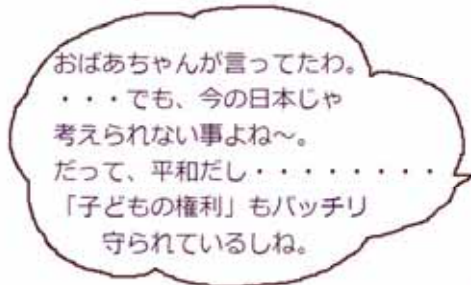 おばあちゃんが言ってたわ。
・・・でも、今の日本じゃ
考えられない事よね～。
だって、平和だし・・・・・・・・・
「子どもの権利」もバッチリ
守られているしね。